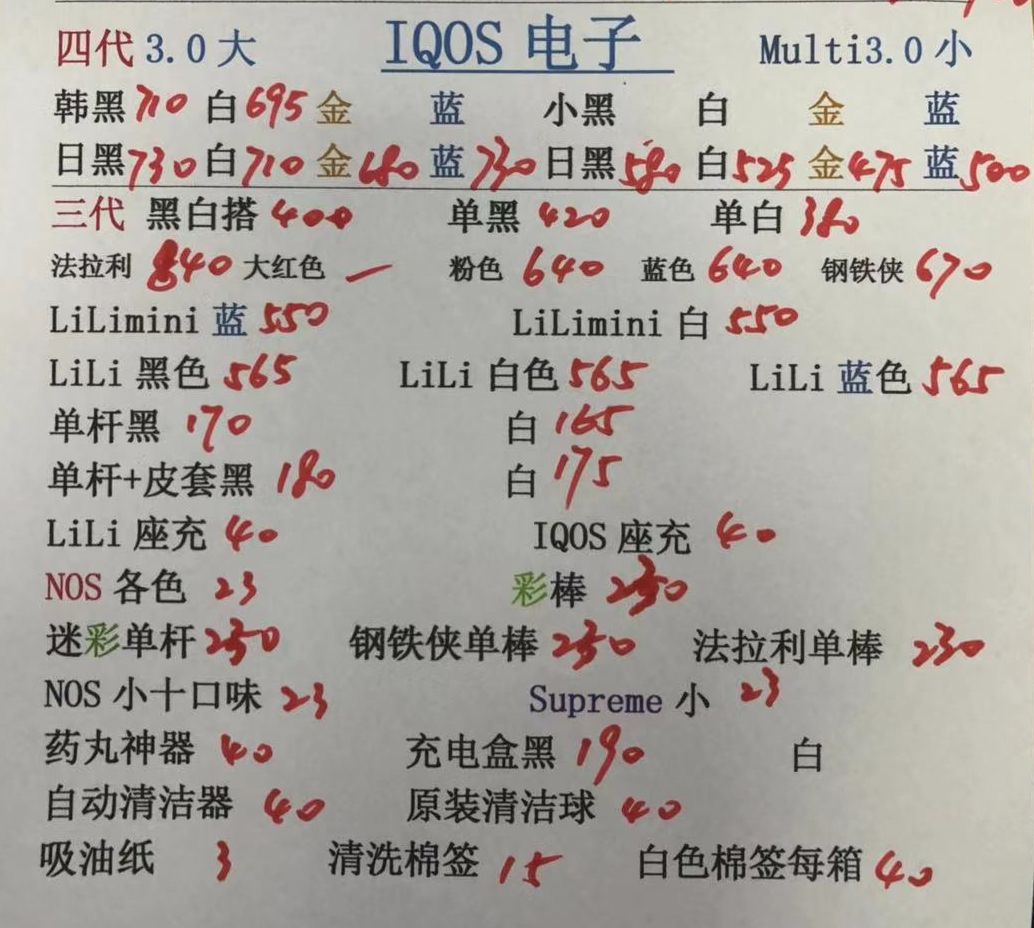 四代 3.0 大 IQOS 电子 Multi3.0 小
韩黑 710 白 695 金 蓝 小黑 白 金 蓝
日黑 730 白 710 金 680 蓝 730 日黑 580 白 525 金 475 蓝 500
三代 黑白搭 400 单黑 420 单白 380
法拉利 840 大红色 — 粉色 640 蓝色 640 钢铁侠 670
LiLimini 蓝 550 LiLimini 白 550
LiLi 黑色 565 LiLi 白色 565 LiLi 蓝色 565
单杆黑 170 白 165
单杆+皮套黑 180 白 175
LiLi 座充 40 IQOS 座充 40
NOS 各色 23 彩棒 230
迷彩单杆 250 钢铁侠单棒 250 法拉利单棒 230
NOS 小十口味 23 Supreme 小 23
药丸神器 40 充电盒黑 190 白
自动清洁器 40 原装清洁球 40
吸油纸 3 清洗棉签 15 白色棉签每箱 40